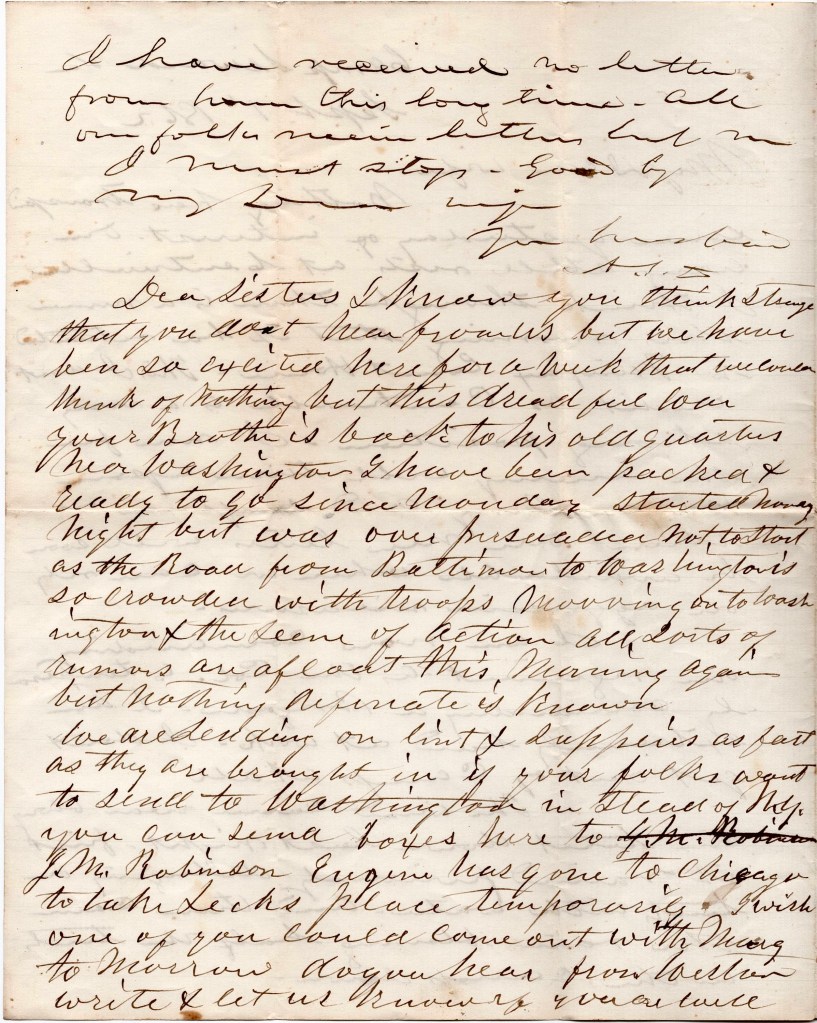 I have received no letter
from home this long time - All
our folks receive letters but me
I must stop - Good by
My Dear wife
Your husband
Dear Sisters I know you think strange
that you dont hear from us but we have
ben so excited here for a week that we could
think of nothing but this dreadful war
your Brother is back to his old quarters
near Washington I have been packed &
ready to go since Monday started Monday
night but was over persuaded not to start
as the Road from Baltimore to Washington is
so crowded with troops Moovving on to Wash
ington & the Scene of Action all Sorts of
rumors are afloat this Morning again
but nothing defineate is known
We are Sending on lint & Suppeies as fast
as they are brought in if your folks want
to send to Washington in Stead of N.Y.
you can send boxes here to J. M. Robinson
J. M. Robinson Eugene has gone to Chicago
to take Lecks place temporarily. I wish
one of you could come out with Marg
to Morrow do you hear from Weston
write & let us know if you are well